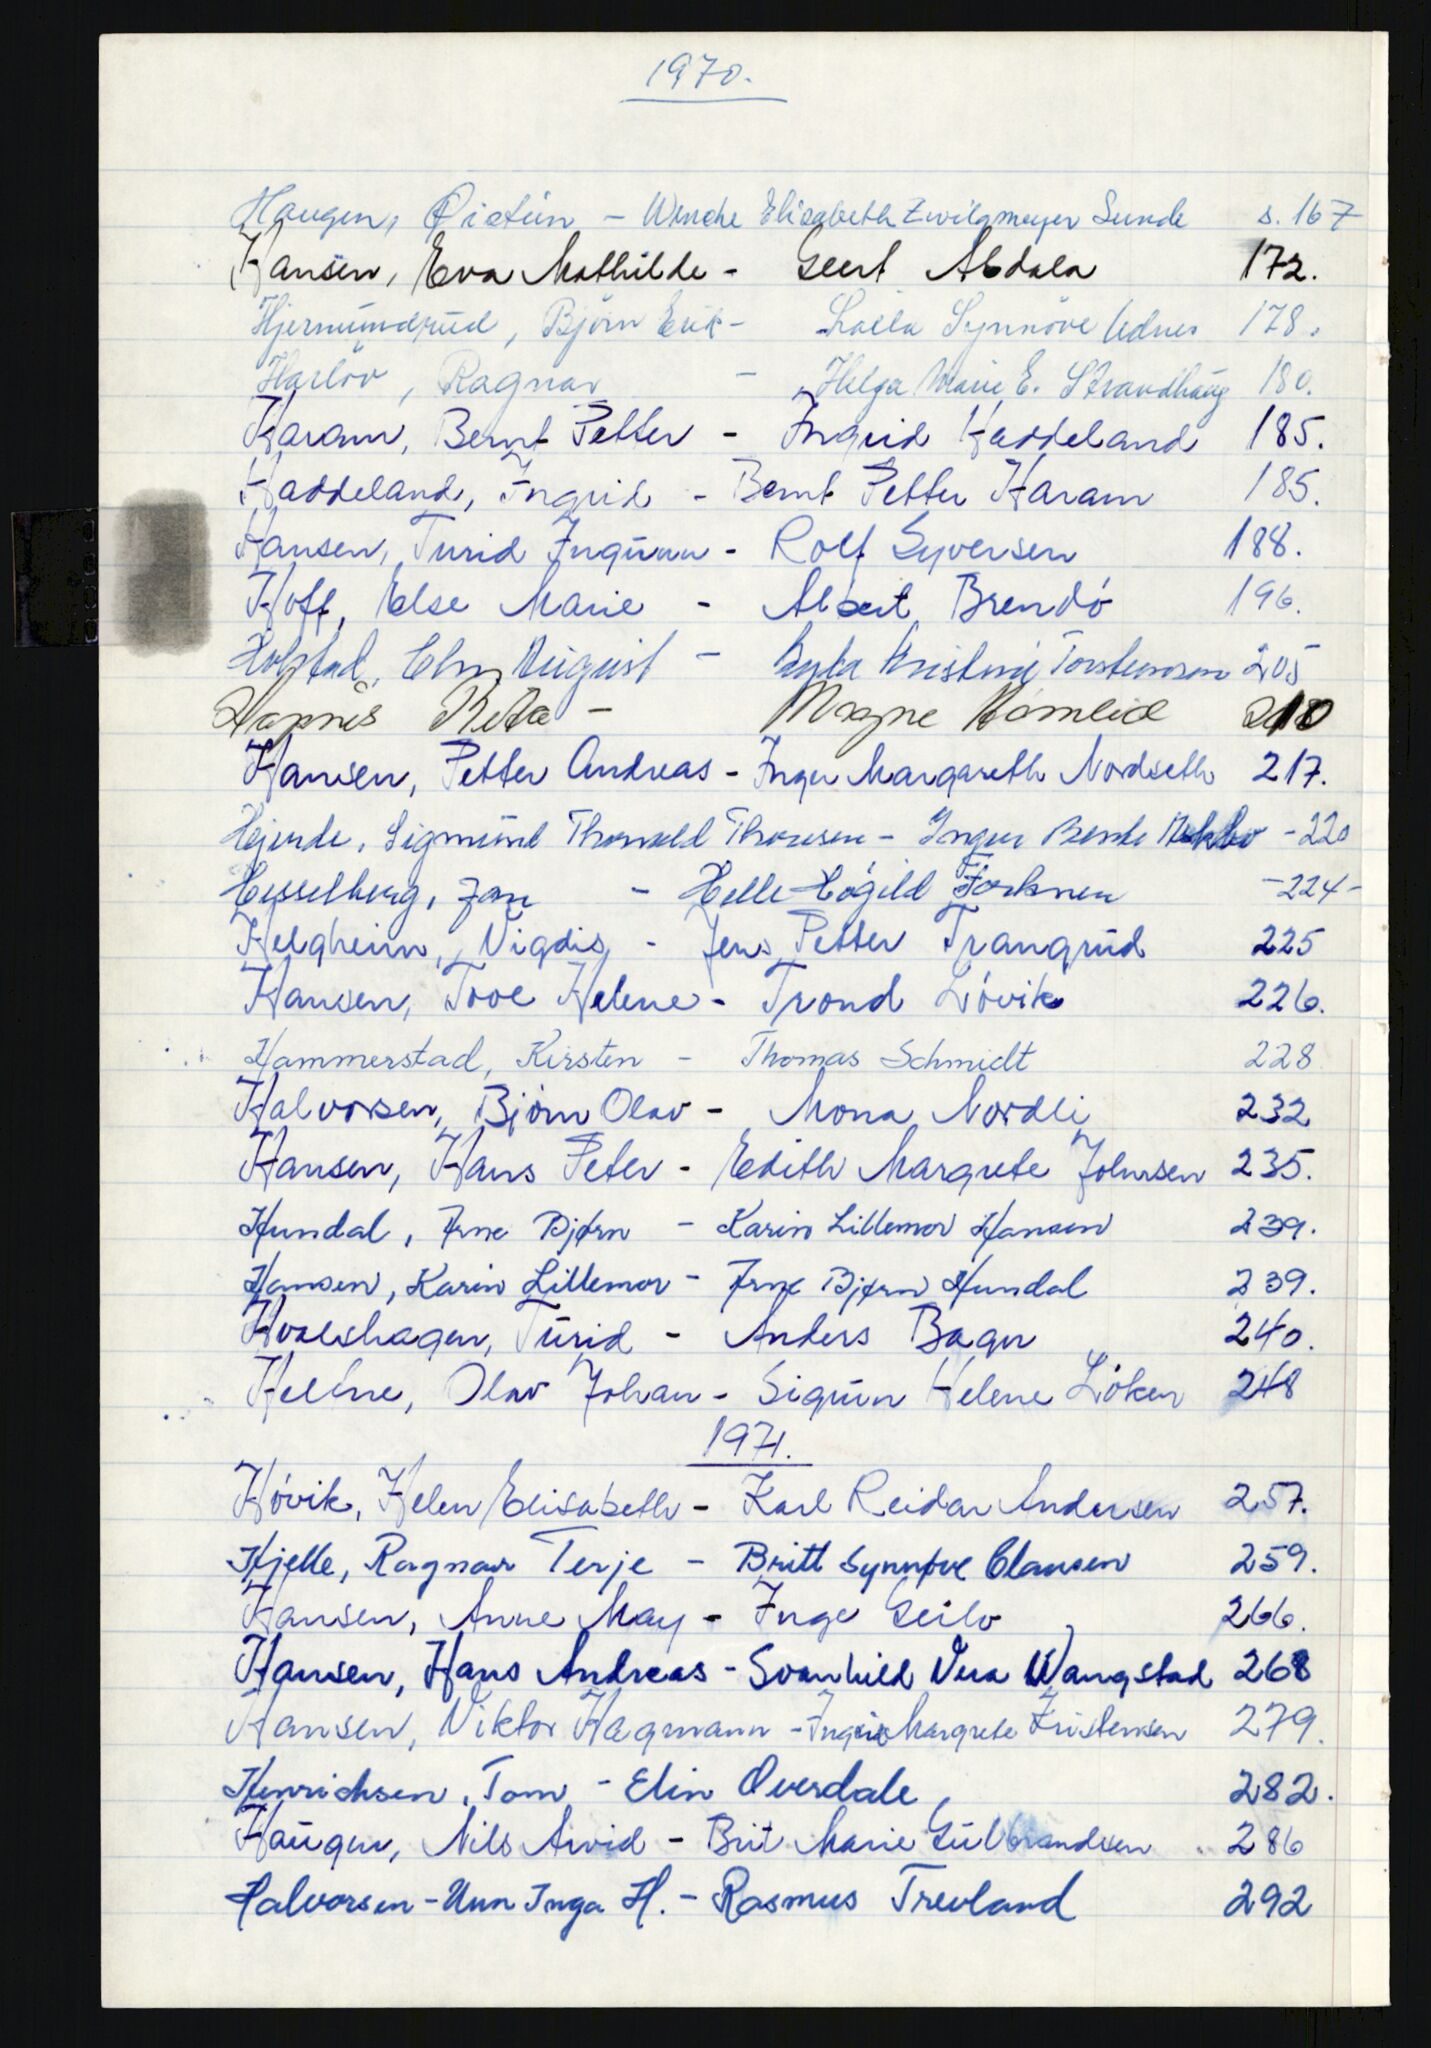 1970.
Haugen, Öistein - Wenche Elisabeth Zwilgmeyer Sunde s. 167
Hansen, Eva Mathilde - Geert Abdala 172.
Hjermundrud, Björn Erik - Laila Synnöve Udnes 178.
Harlöv, Ragnar - Helga Marie E. Strandhaug 180.
Haram, Bernt Petter - Ingrid Haddeland 185.
Haddeland, Ingrid - Bernt Petter Haram 185.
Hansen, Turid Ingunn - Rolf Syversen 188.
Hoff, Else Marie - Albert Brendö 196.
August - Torstensson 205
Rita - Magne 210
Hansen, Petter Andreas - Inger Margareth Nordseth 217.
Hjerde, Sigmund Thorvald Thoresen - Inger Bente - 220
Hesselberg, Jan - Helle Högild - 224 -
Helgheim, Vigdis - Jens Petter Trangrud 225
Hansen, Tove Helene - Trond Lövik 226.
Hammerstad, Kirsten - Thomas Schmidt 228
Halvorsen, Björn Olav - Mona Nordli 232
Hansen, Hans Peter - Edith Margrete Johnsen 235.
Hundal, Arne Bjørn - Karin Lillemor Hansen 239.
Hansen, Karin Lillemor - Arne Bjørn Hundal 239.
Hvalshagen, Turid - Anders Bager 240.
Hellne, Olav Johan - Sigrun Helene Löken 248
1971.
Hövik, Helen Elisabeth - Karl Reidar Andersen 257.
Hjelle, Ragnar Terje - Britt Synnøve Clausen 259.
Hansen, Anne May - Inge Geilo 266.
Hansen, Hans Andreas - Svanhild Vera Wangstad 268
Hansen, Viktor Hagmann - Ingrid Margrete Kristensen 279.
Henrichsen, Tom - Elin Overdale 282.
Haugen, Nils Arvid - Brit Marie Gulbrandsen 286
Halvorsen - Unn Inga H. - Rasmus Trevland 292